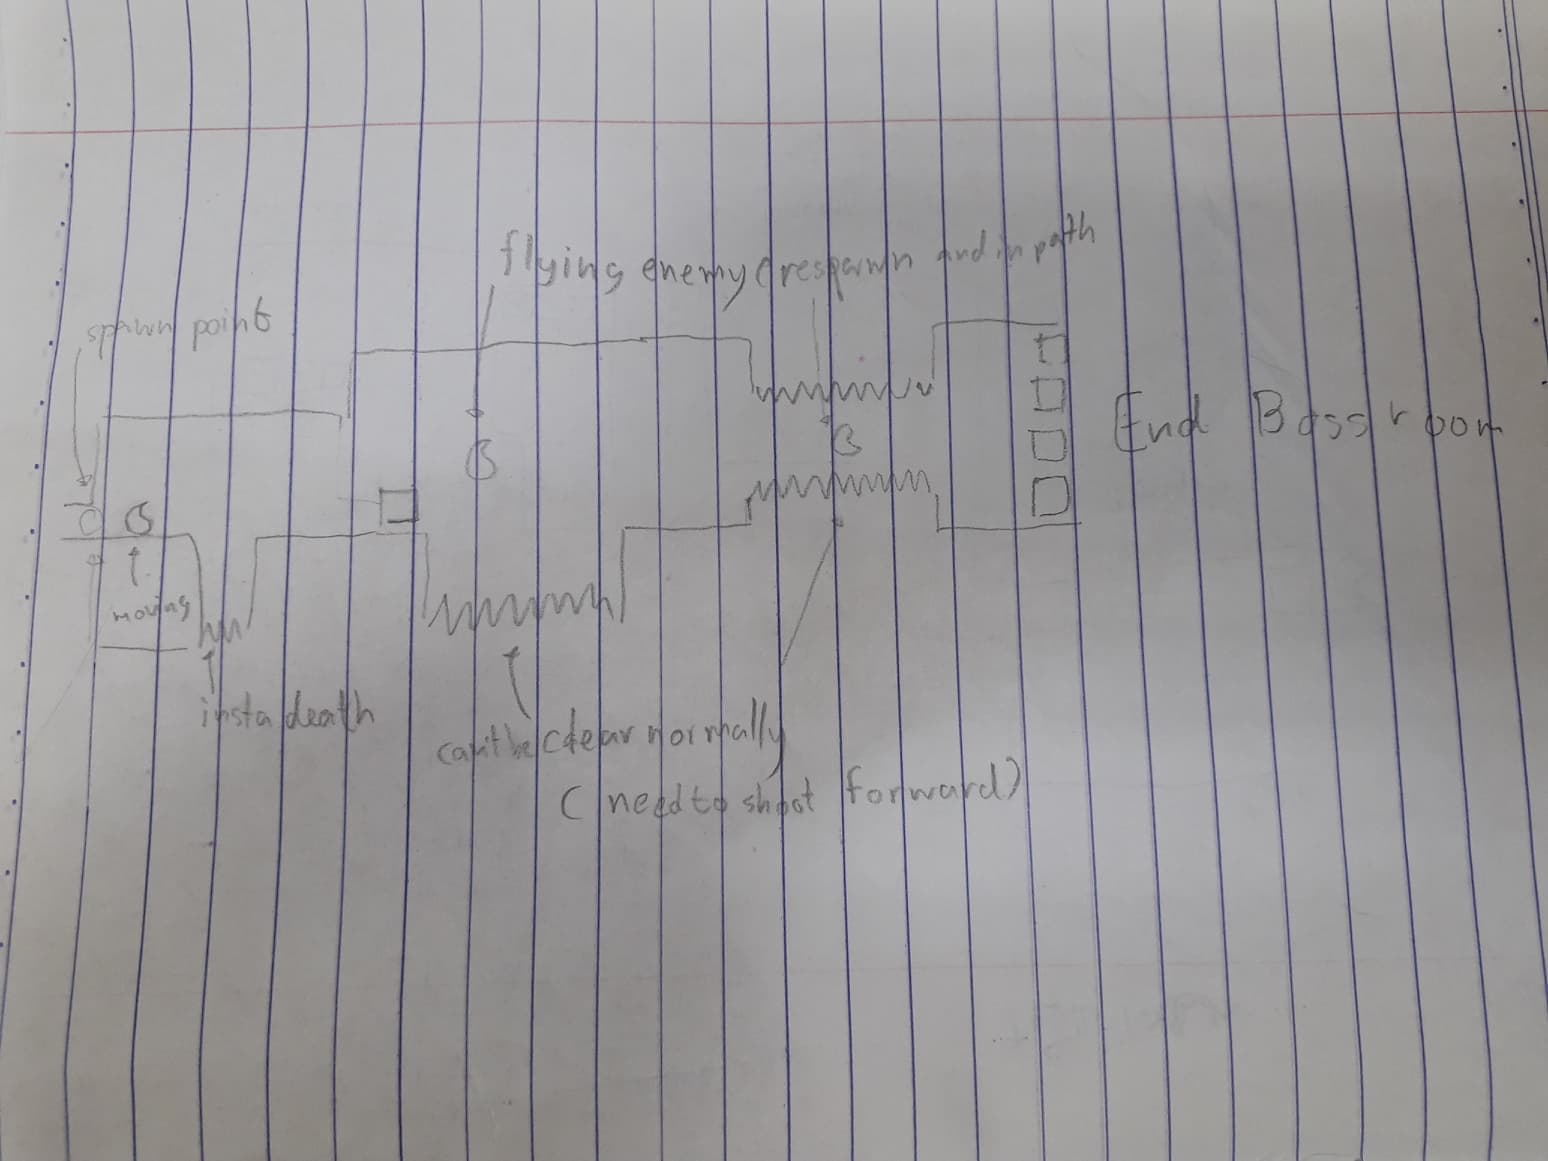 flying enemy (respawn and in path
spawn point
End Boss room
moving
insta death
can't be clear normally
( need to shoot forward)